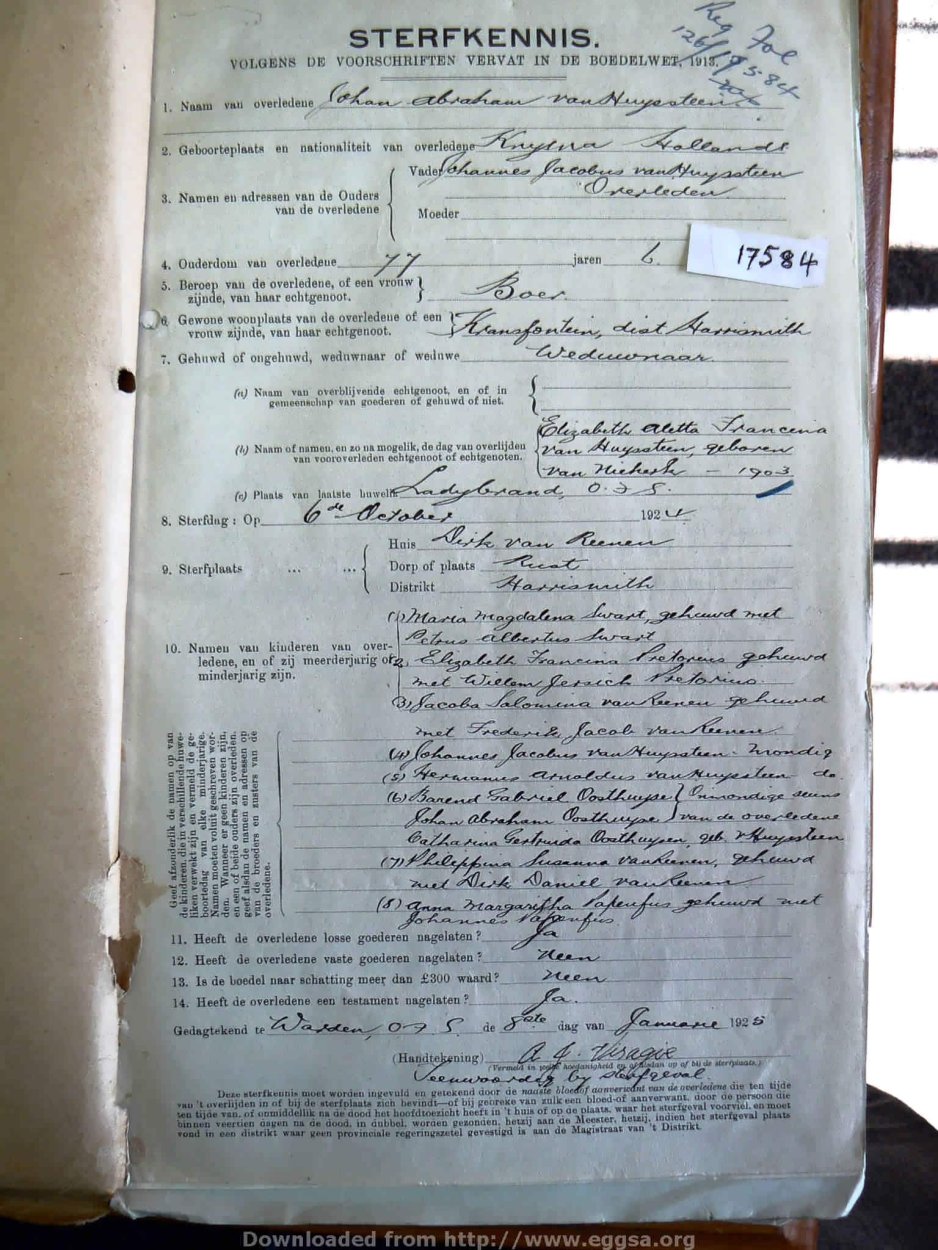 Reg Fol
126/19584
STERFKENNIS.
VOLGENS DE VOORSCHRIFTEN VERVAT IN DE BOEDELWET, 1913.
1. Naam van overledene Johan Abraham van Huyssteen
2. Geboorteplaats en nationaliteit van overledene Knysna Hollands
3. Namen en adressen van de Ouders van de overledene
Vader Johannes Jacobus van Huyssteen
Overleden
Moeder
4. Ouderdom van overledene 77 jaren 6.
17584
5. Beroep van de overledene, of een vrouw zijnde, van haar echtgenoot. Boer
6. Gewone woonplaats van de overledene of een vrouw zijnde, van haar echtgenoot. Kransfontein, dist Harrismith
7. Gehuwd of ongehuwd, weduwnaar of weduwe Weduwnaar
(a) Naam van overblijvende echtgenoot, en of in
gemeenschap van goederen of gehuwd of niet.
(b) Naam of namen, en zo na mogelik, de dag van overlijden
van vooroverleden echtgenoot of echtgenoten.
Elizabeth Aletta Francina
van Huyssteen, geboren
van Niekerk - 1903
(c) Plaats van laatste huwelik Ladybrand, O.F.S.
8. Sterfdag: Op 6de October 1924
9. Sterfplaats ... ...
Huis Dirk van Reenen
Dorp of plaats Rust
Distrikt Harrismith
10. Namen van kinderen van over-
ledene, en of zij meerderjarig of
minderjarig zijn.
(1) Maria Magdalena Swart, gehuwd met
Petrus Albertus Swart
2, Elizabeth Francina Pretorius gehuwd
met Willem Pretorius
(3) Jacoba Salomina van Reenen gehuwd
met Frederik Jacob van Reenen
(4) Johannes Jacobus van Huyssteen - mondig
(5) Hermanus Arnoldus van Huyssteen do.
(6) Barend Gabriel Oosthuyse Onmondige seuns
Johan Abraham Oosthuyse van de overledene
Catharina Gertruida Oosthuysen, geb. v Huyssteen
(7) Philippina Susanna van Reenen, gehuwd
met Dirk Daniel van Reenen
(8) Anna Margaritha Papenfus gehuwd met
Johannes Papenfus
Geef afzonderlik de namen op van
de kinderen, die in verschillende huwe-
liken verwekt zijn en vermeld de ge-
boortedag van elke minderjarige.
Namen moeten voluit geschreven wor-
den. Wanneer er geen kinderen zijn,
en een of beide ouders zijn overleden,
geef alsdan de namen en adressen op
van de broeders en zusters van de
overledene.
11. Heeft de overledene losse goederen nagelaten? Ja
12. Heeft de overledene vaste goederen nagelaten? Neen
13. Is de boedel naar schatting meer dan £300 waard? Neen
14. Heeft de overledene een testament nagelaten? Ja.
Gedagtekend te Warden, O F S de 8ste dag van Januarie 1925
(Handtekening) A. J. Viragie
(Vermeld in welke hoedanigheid en of alsdan op of bij de sterfplaats.)
Teenwoordig by sterfgeval.
Deze sterfkennis moet worden ingevuld en getekend door de naaste bloed of aanverwant van de overledene die ten tijde
van 't overlijden in of bij de sterfplaats zich bevindt—of bij gebreke van zulk een bloed-of aanverwant, door de persoon die
ten tijde van, of onmiddellik na de dood het hoofdtoezicht heeft in 't huis of op de plaats, waar het sterfgeval voorviel, en moet
binnen veertien dagen na de dood, in dubbel, worden gezonden, hetzij aan de Meester, hetzij, indien het sterfgeval plaats
vond in een distrikt waar geen provinciale regeringszetel gevestigd is aan de Magistraat van 't Distrikt.
Downloaded from http://www.eggsa.org